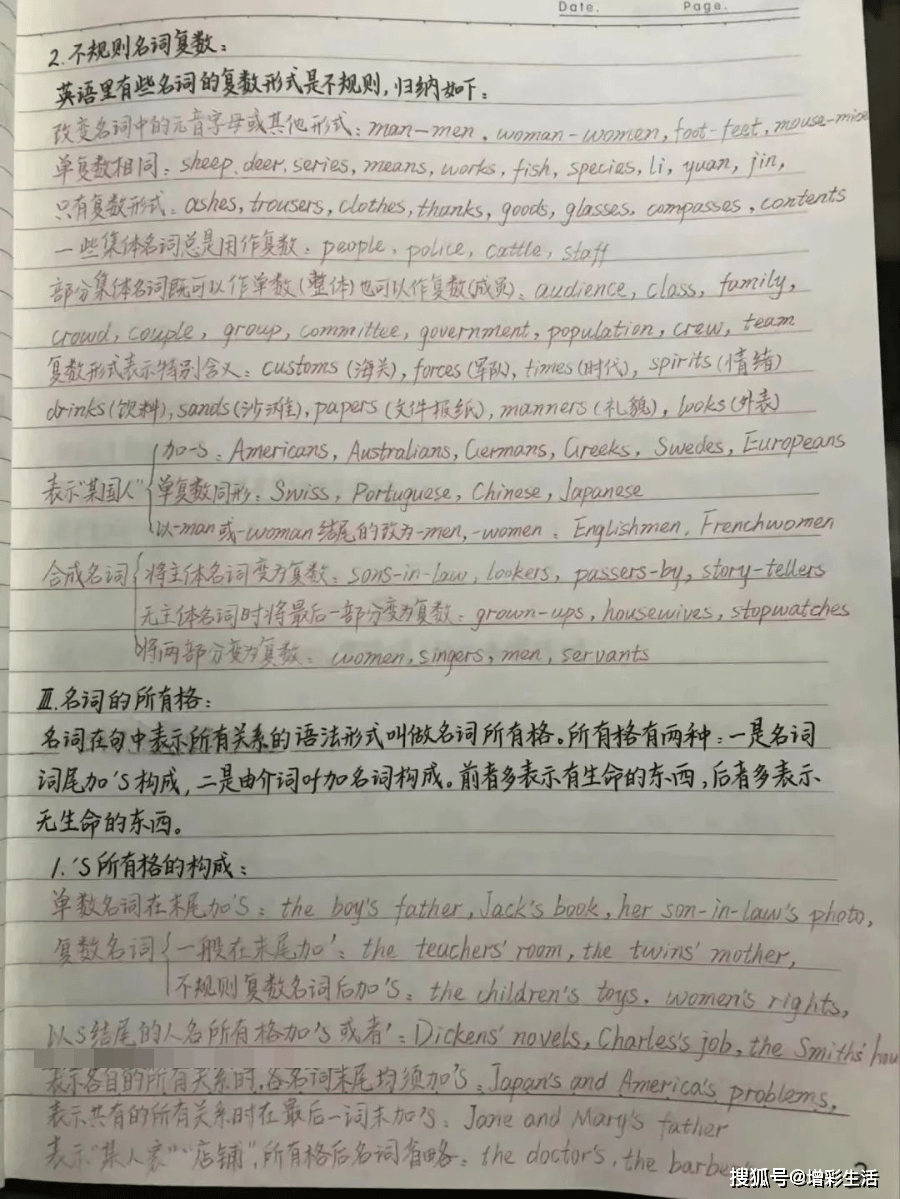 Date. Page.
2.不规则名词复数：
英语里有些名词的复数形式是不规则，归纳如下：
改变名词中的元音字母或其他形式：man-men，woman-women，foot-feet，mouse-mice
单复数相同：sheep，deer，series，means，works，fish，species，li，yuan，jin，
只有复数形式：ashes，trousers，clothes，thanks，goods，glasses，compasses，contents
一些集体名词总是用作复数：people，police，cattle，staff
部分集体名词既可以作单数（整体）也可以作复数（成员）：audience，class，family，
crowd，couple，group，committee，government，population，crew，team
复数形式表示特别含义：customs（海关），forces（军队），times（时代），spirits（情绪）
drinks（饮料），sands（沙滩），papers（文件报纸），manners（礼貌），looks（外表）
加-s：Americans，Australians，Germans，Greeks，Swedes，Europeans
表示"某国人" 单复数同形：Swiss，Portuguese，Chinese，Japanese
以-man或-woman结尾的改为-men，-women：Englishmen，Frenchwomen
合成名词 将主体名词变为复数：sons-in-law，lookers，passers-by，story-tellers
无主体名词时将最后一部分变为复数：grown-ups，housewives，stopwatches
将两部分变为复数：women，singers，men，servants
Ⅱ.名词的所有格：
名词在句中表示所有关系的语法形式叫做名词所有格。所有格有两种：一是名词
词尾加'S构成，二是由介词叶加名词构成。前者多表示有生命的东西，后者多表示
无生命的东西。
1.'S所有格的构成：
单数名词在末尾加'S：the boy's father，Jack's book，her son-in-law's photo，
复数名词 一般在末尾加'：the teachers' room，the twins' mother，
不规则复数名词后加'S：the children's toys，women's rights，
以S结尾的人名所有格加'S或者'：Dickens' novels，Charles's job，the Smiths'
表示各自的所有关系时，各名词末尾均须加'S：Japan's and America's problems，
表示共有的所有关系时在最后一词末加'S：Jane and Mary's father
表示"某人家""店铺"，所有格后名词省略：the doctor's，the
搜狐号@增彩生活